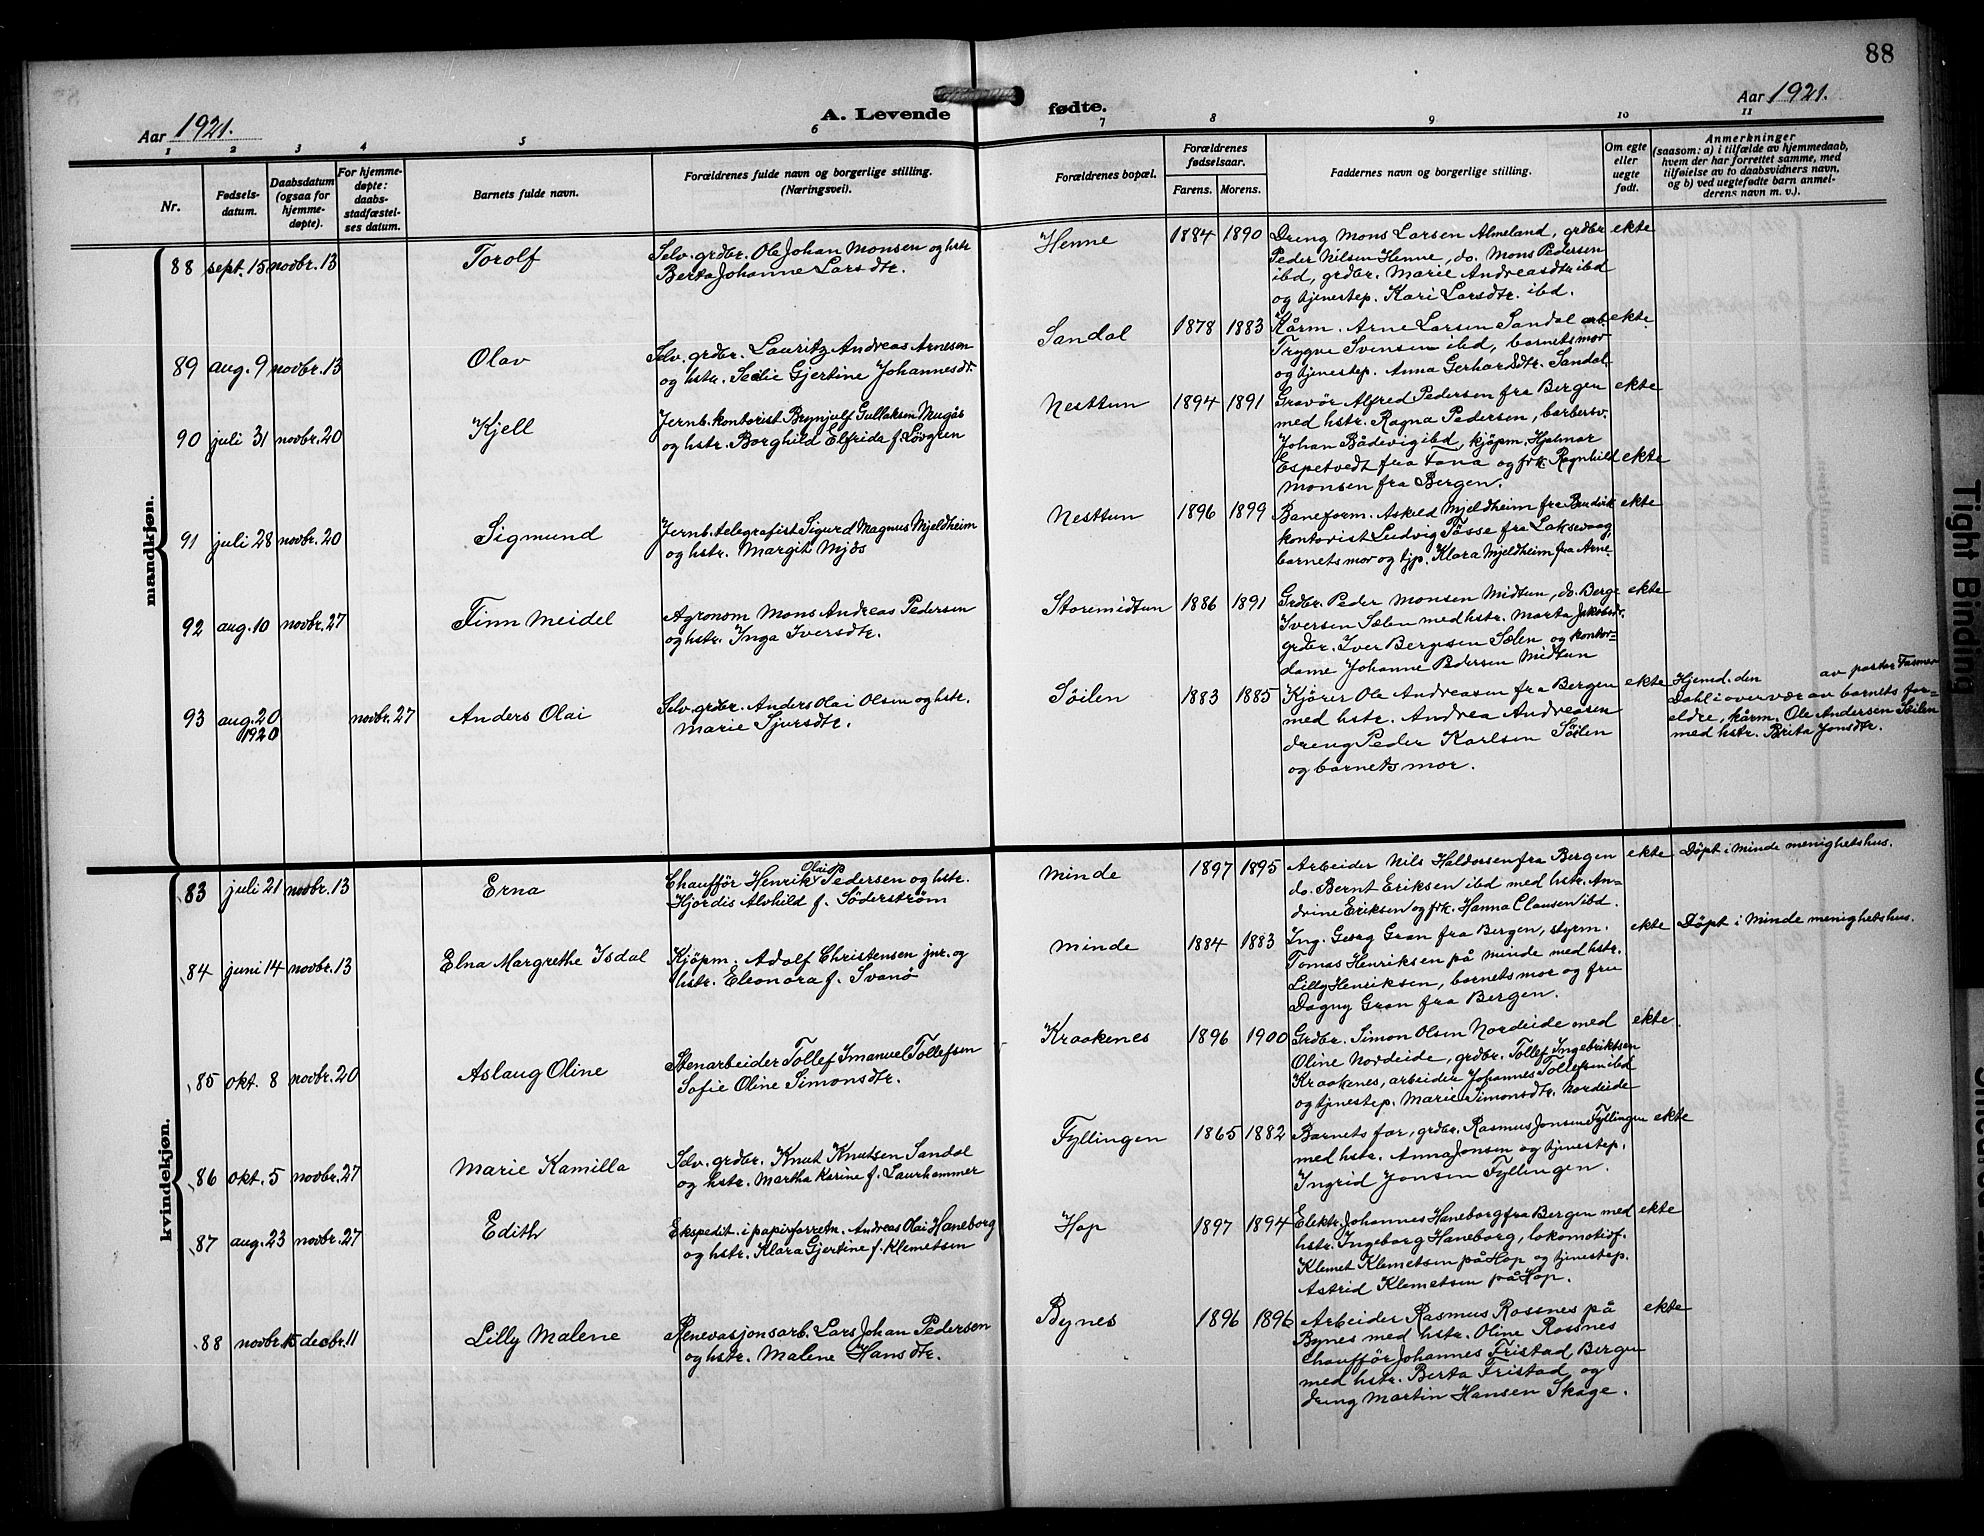 88
Aar 1921.
A. Levende fødte.
Aar 1921.
1 2 3 4 5 6 7 8 9 10 11
Nr.
Fødsels-
datum.
Daabsdatum
(ogsaa for
hjemme-
døpte).
For hjemme-
døpte:
daabs-
stadfæstel-
ses datum.
Barnets fulde navn.
Forældrenes fulde navn og borgerlige stilling.
(Næringsvei).
Forældrenes bopæl.
Forældrenes
fødselsaar.
Farens. Morens.
Faddernes navn og borgerlige stilling.
Om egte
eller
uegte
født.
Anmerkninger
(saasom: a) i tilfælde av hjemmedaab,
hvem der har forrettet samme, med
tilføielse av to daabsvidners navn,
og b) ved uegtefødte barn anmel-
derens navn m. v.).
mandkjøn.
88 sept. 15 novbr. 13
Torolf
Selv. grdbr. Ole Johan Monsen og hstr
Berta Johanne Larsdtr.
Henne
1884 1890
Dreng Mons Larsen Almeland, grdbr
Peder Nilsen Henne, do. Mons Pedersen
ibd, grdbr. Marie Andreasdtr ibd
og tjenestep. Kari Larsdtr. ibd.
ekte
89 aug. 9 novbr. 13
Olav
Selv. grdbr. Lauritz Andreas Arnesen
og hstr. Secilie Gjertine Johannesdtr.
Sandal
1878 1883
Kårm. Arne Larsen Sandal arb.
Trygve Svensen ibd, barnets mor
og tjenestep. Anna Gerhardsdtr. Sandal.
ekte
90 juli 31 novbr. 20
Kjell
Jernb. kontorist Brynjulf Gullaksen Mugås
og hstr. Borghild Elfrida f. Lövgren
Nesttun
1894 1891
Gravör Alfred Pedersen fra Bergen
med hstr. Ragna Pedersen, barbersv.
Johan Bådevig ibd, kjöpm. Hjalmar
Espetvedt fra Fana og frk. Ragnhild
Monsen fra Bergen.
ekte
ekte
91 juli 28 novbr. 20
Sigmund
Jernb. telegrafist Sigurd Magnus Mjeldheim
og hstr. Margit Mjös
Nesttun
1896 1899
Baneform. Askild Mjeldheim fra
kontorist Ludvig Tösse fra Laksevaag,
barnets mor og tjp. Klara Mjeldheim fra Arne
ekte
92 aug. 10 novbr. 27
Finn Meidel
Agronom Mons Andreas Pedersen
og hstr. Inga Iversdtr.
Storemidtun
1886 1891
Grdbr. Peder Monsen Midtun, do. Berge
Iversen Sælen med hstr. Marta Jakobsdtr.
grdbr. Iver Bergesen Sælen og kontor-
dame Johanne Pedersen Midtun
ekte
93 aug. 20
1920
novbr. 27
Anders Olai
Selv. grdbr. Anders Olai Olsen og hstr.
Marie Sjursdtr.
Söilen
1883 1885
Kjörer Ole Andreasen fra Bergen
med hstr. Andrea Andreasen
dreng Peder Karlsen Söilen
og barnets mor.
ekte
Hjemd. den av pastor Fasmer
Dahl i overvær av barnets for-
eldre, kårm. Ole Andersen Söilen
med hstr. Brita Jonsdtr.
kvindekjøn.
83 juli 21 novbr. 13
Erna
Olai
Chaufför Henrik Pedersen og hstr.
Hjördis Alvhild f. Söderström
Minde
1897 1895
Arbeider Nils Haldorsen fra Bergen
do. Bernt Eriksen ibd med hstr. An-
drine Eriksen og frk. Hanna Clausen ibd.
ekte
Döpt i Minde menighetshus.
84 juni 14 novbr. 13
Elna Margrethe Isdal
Kjöpm. Adolf Christensen jnr. og
hstr. Eleonora f. Svanö
Minde
1884 1883
Ing. Georg Gran fra Bergen, styrm.
Tomas Henriksen på Minde med hstr.
Lilly Henriksen, barnets mor og fru
Dagny Gran fra Bergen.
ekte
Döpt i Minde menighetshus.
85 okt. 8 novbr. 20
Aslaug Oline
Stenarbeider Tollef Imanuel Tollefsen
Sofie Oline Simonsdtr.
Kraakenes
1896 1900
Grdbr. Simon Olsen Nordeide med
Oline Nordeide, grdbr. Tollef Ingebriktsen
Kraakenes, arbeider Johannes Tollefsen ibd
og tjenestep. Marie Simonsdtr. Nordeide
ekte
86 okt. 5 novbr. 27
Marie Kamilla
Selv. grdbr. Knut Knutsen Sandal
og hstr. Martha Karine f. Laurhammer
Fyllingen
1865 1882
Barnets far, grdbr. Rasmus Jonsen Fyllingen
med hstr. Anna Jonsen og tjenestep.
Ingrid Jonsen Fyllingen.
ekte
87 aug. 23 novbr. 27
Edith
Ekspedit. i papirforretn. Andreas Olai Haneborg
og hstr. Klara Gjertine f. Klemetsen
Hop
1897 1894
Elektr. Johannes Haneborg fra Bergen med
hstr. Ingeborg Haneborg, lokomotivf.
Klemet Klemetsen på Hop og tjenestep.
Astrid Klemetsen på Hop.
ekte
88 novbr. 15 decbr. 11
Lilly Malene
Renevasjonsarb. Lars Johan Pedersen
og hstr. Malene Hansdtr.
Bynes
1896 1896
Arbeider Rasmus Rossnes på
Bynes med hstr. Oline Rossnes
Chaufför Johannes Fristad, Bergen
med hstr. Berta Fristad og
dreng Martin Hansen Skage.
ekte
Tight Binding